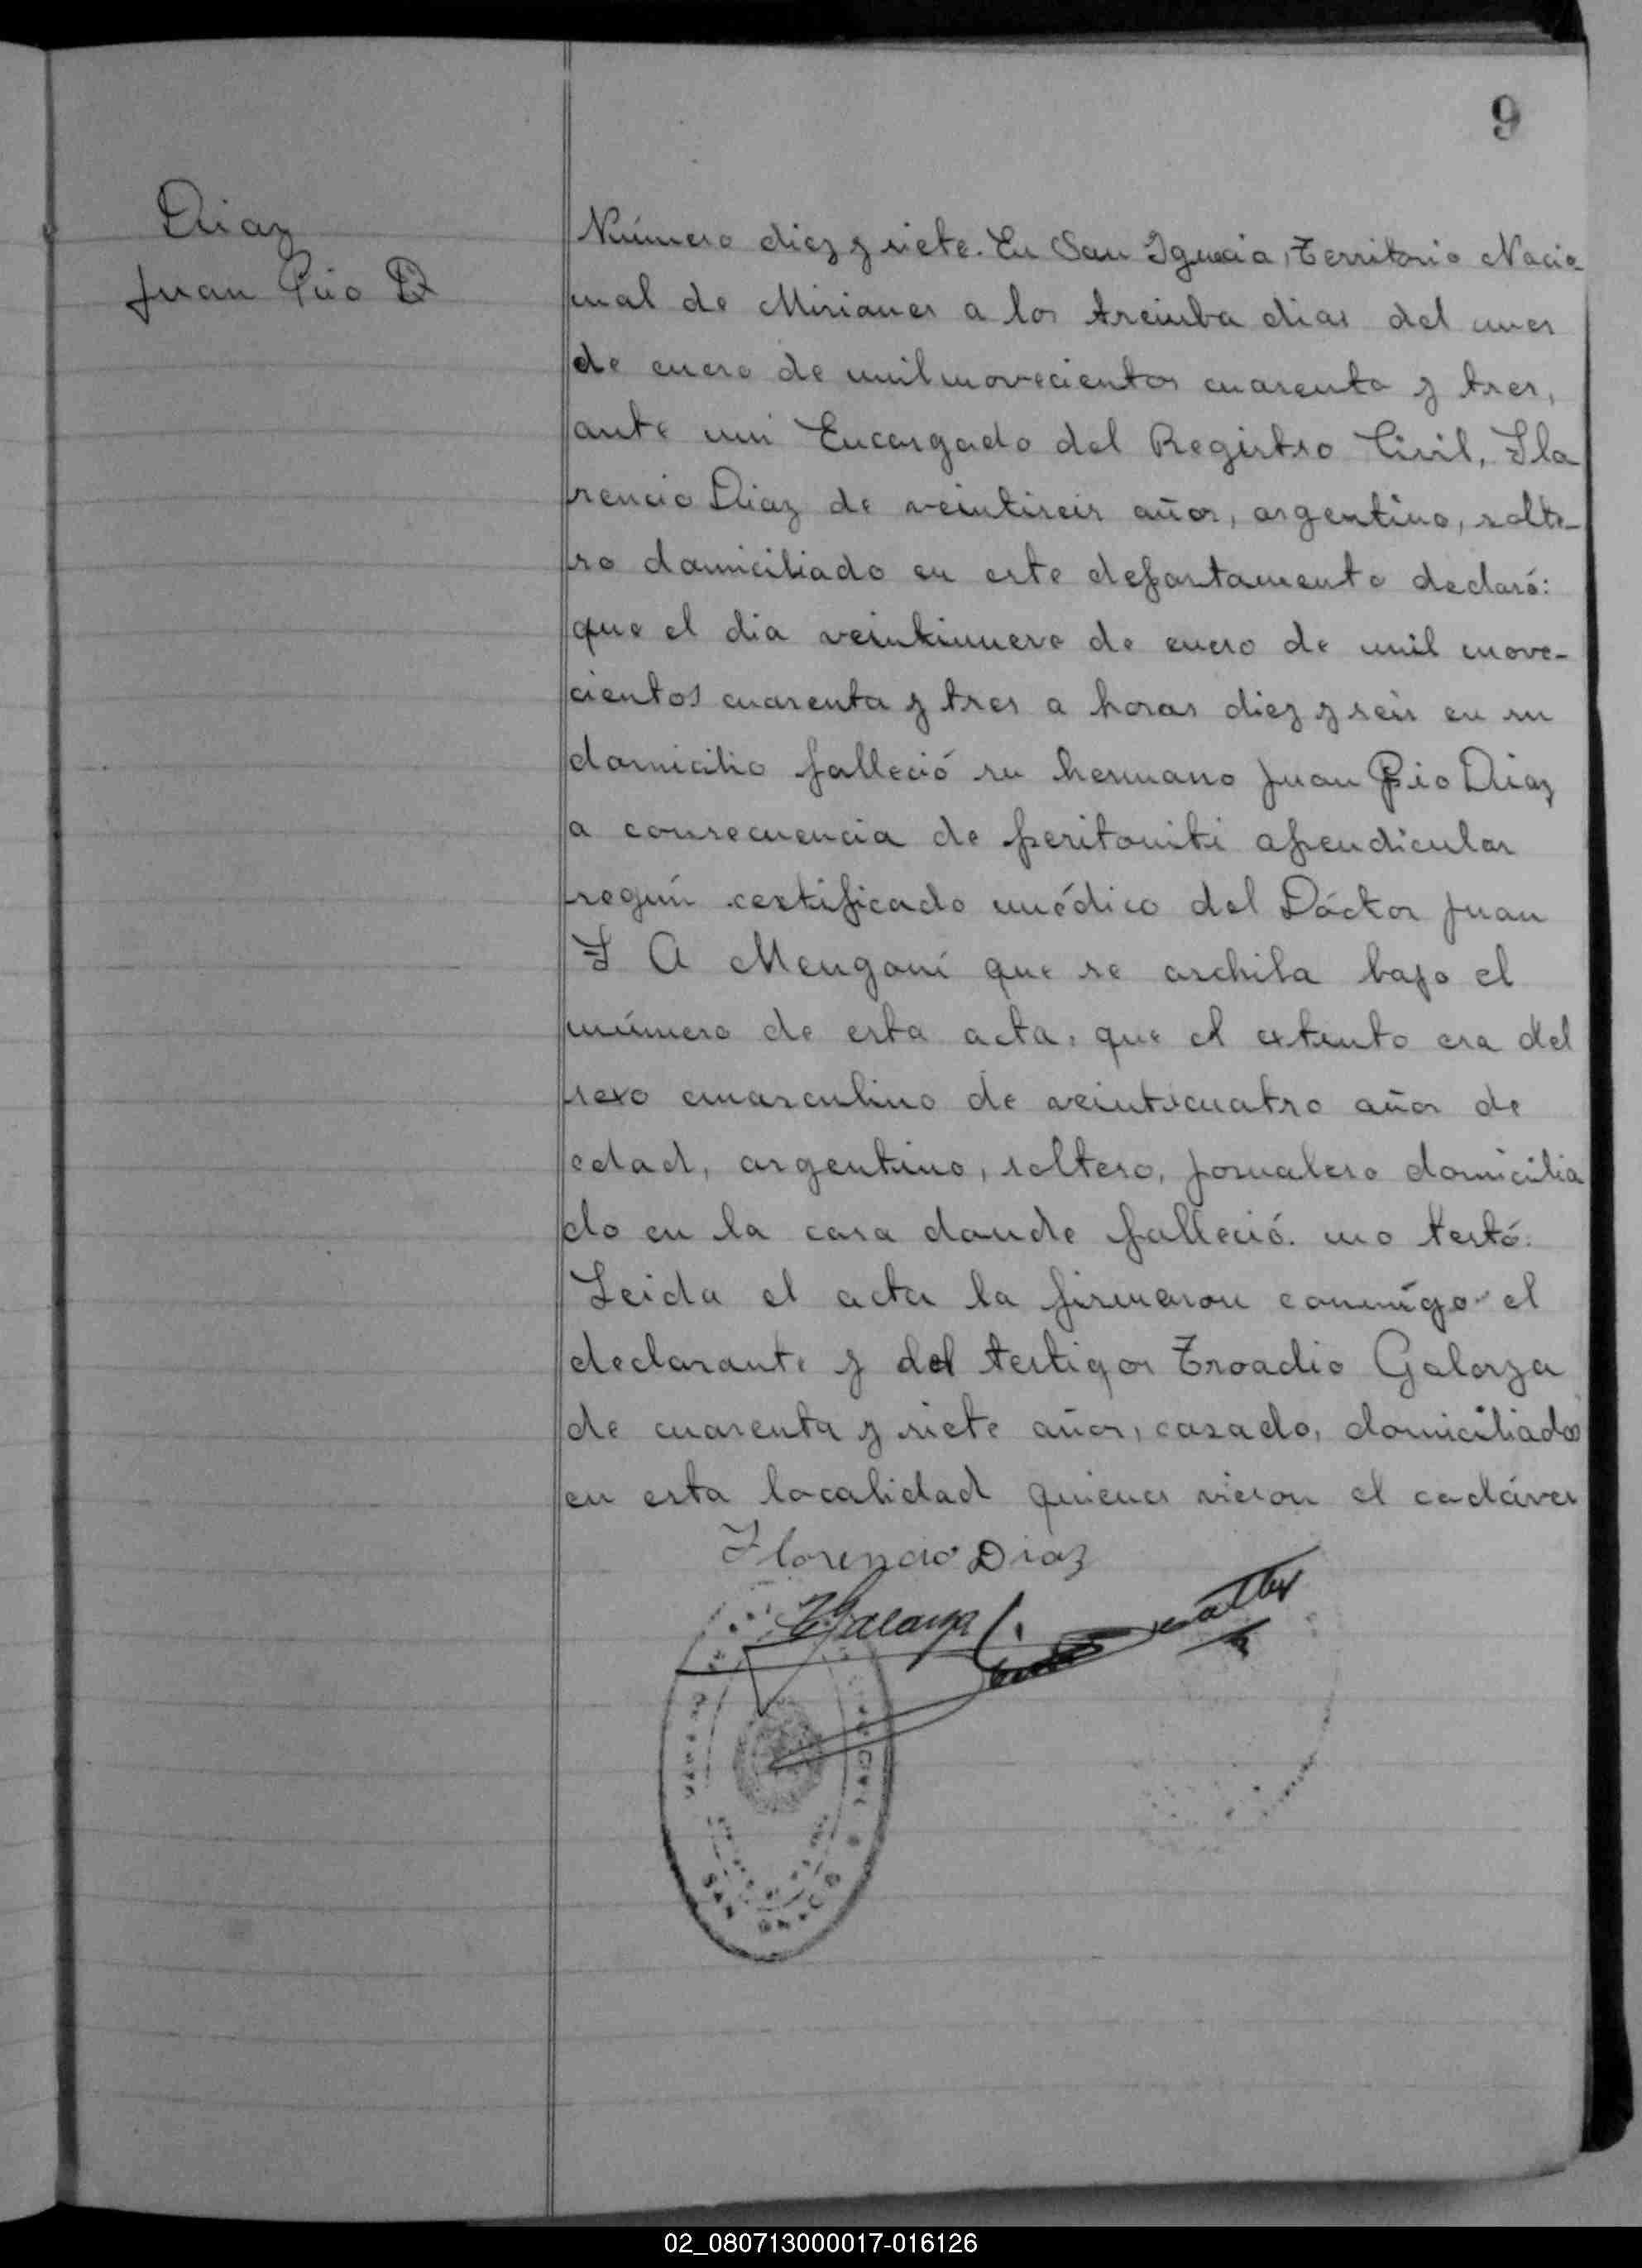 9
Diaz
Juan Pio D
Número diez y siete. En San Ignacio, Territorio Nacio-
nal de Misiones a los treinta dias del mes
de enero de milnovecientos cuarenta y tres,
ante mi Encargado del Registro Civil, Flo
rencio Diaz de veintiseis años, argentino, solte-
ro domiciliado en este departamento declaró:
que el dia veintinueve de enero de mil nove-
cientos cuarenta y tres a horas diez y seis en su
domicilio falleció su hermano Juan Pio Diaz
a consecuencia de peritoniti apendicular
según certificado médico del Dóctor Juan
F A Mengoni que se archiba bajo el
número de esta acta, que el extinto era del
sexo masculino de veinticuatro años de
edad, argentino, soltero, jornalero domicilia
do en la casa donde falleció. no testó.
Leida el acta la firmaron conmigo el
declarante y del testigos Troadio Galarza
de cuarenta y siete años, casado, domiciliados
en esta localidad quienes vieron el cadáver
Florencio Diaz
T Galarza
SAN IGNACIO
02_080713000017-016126